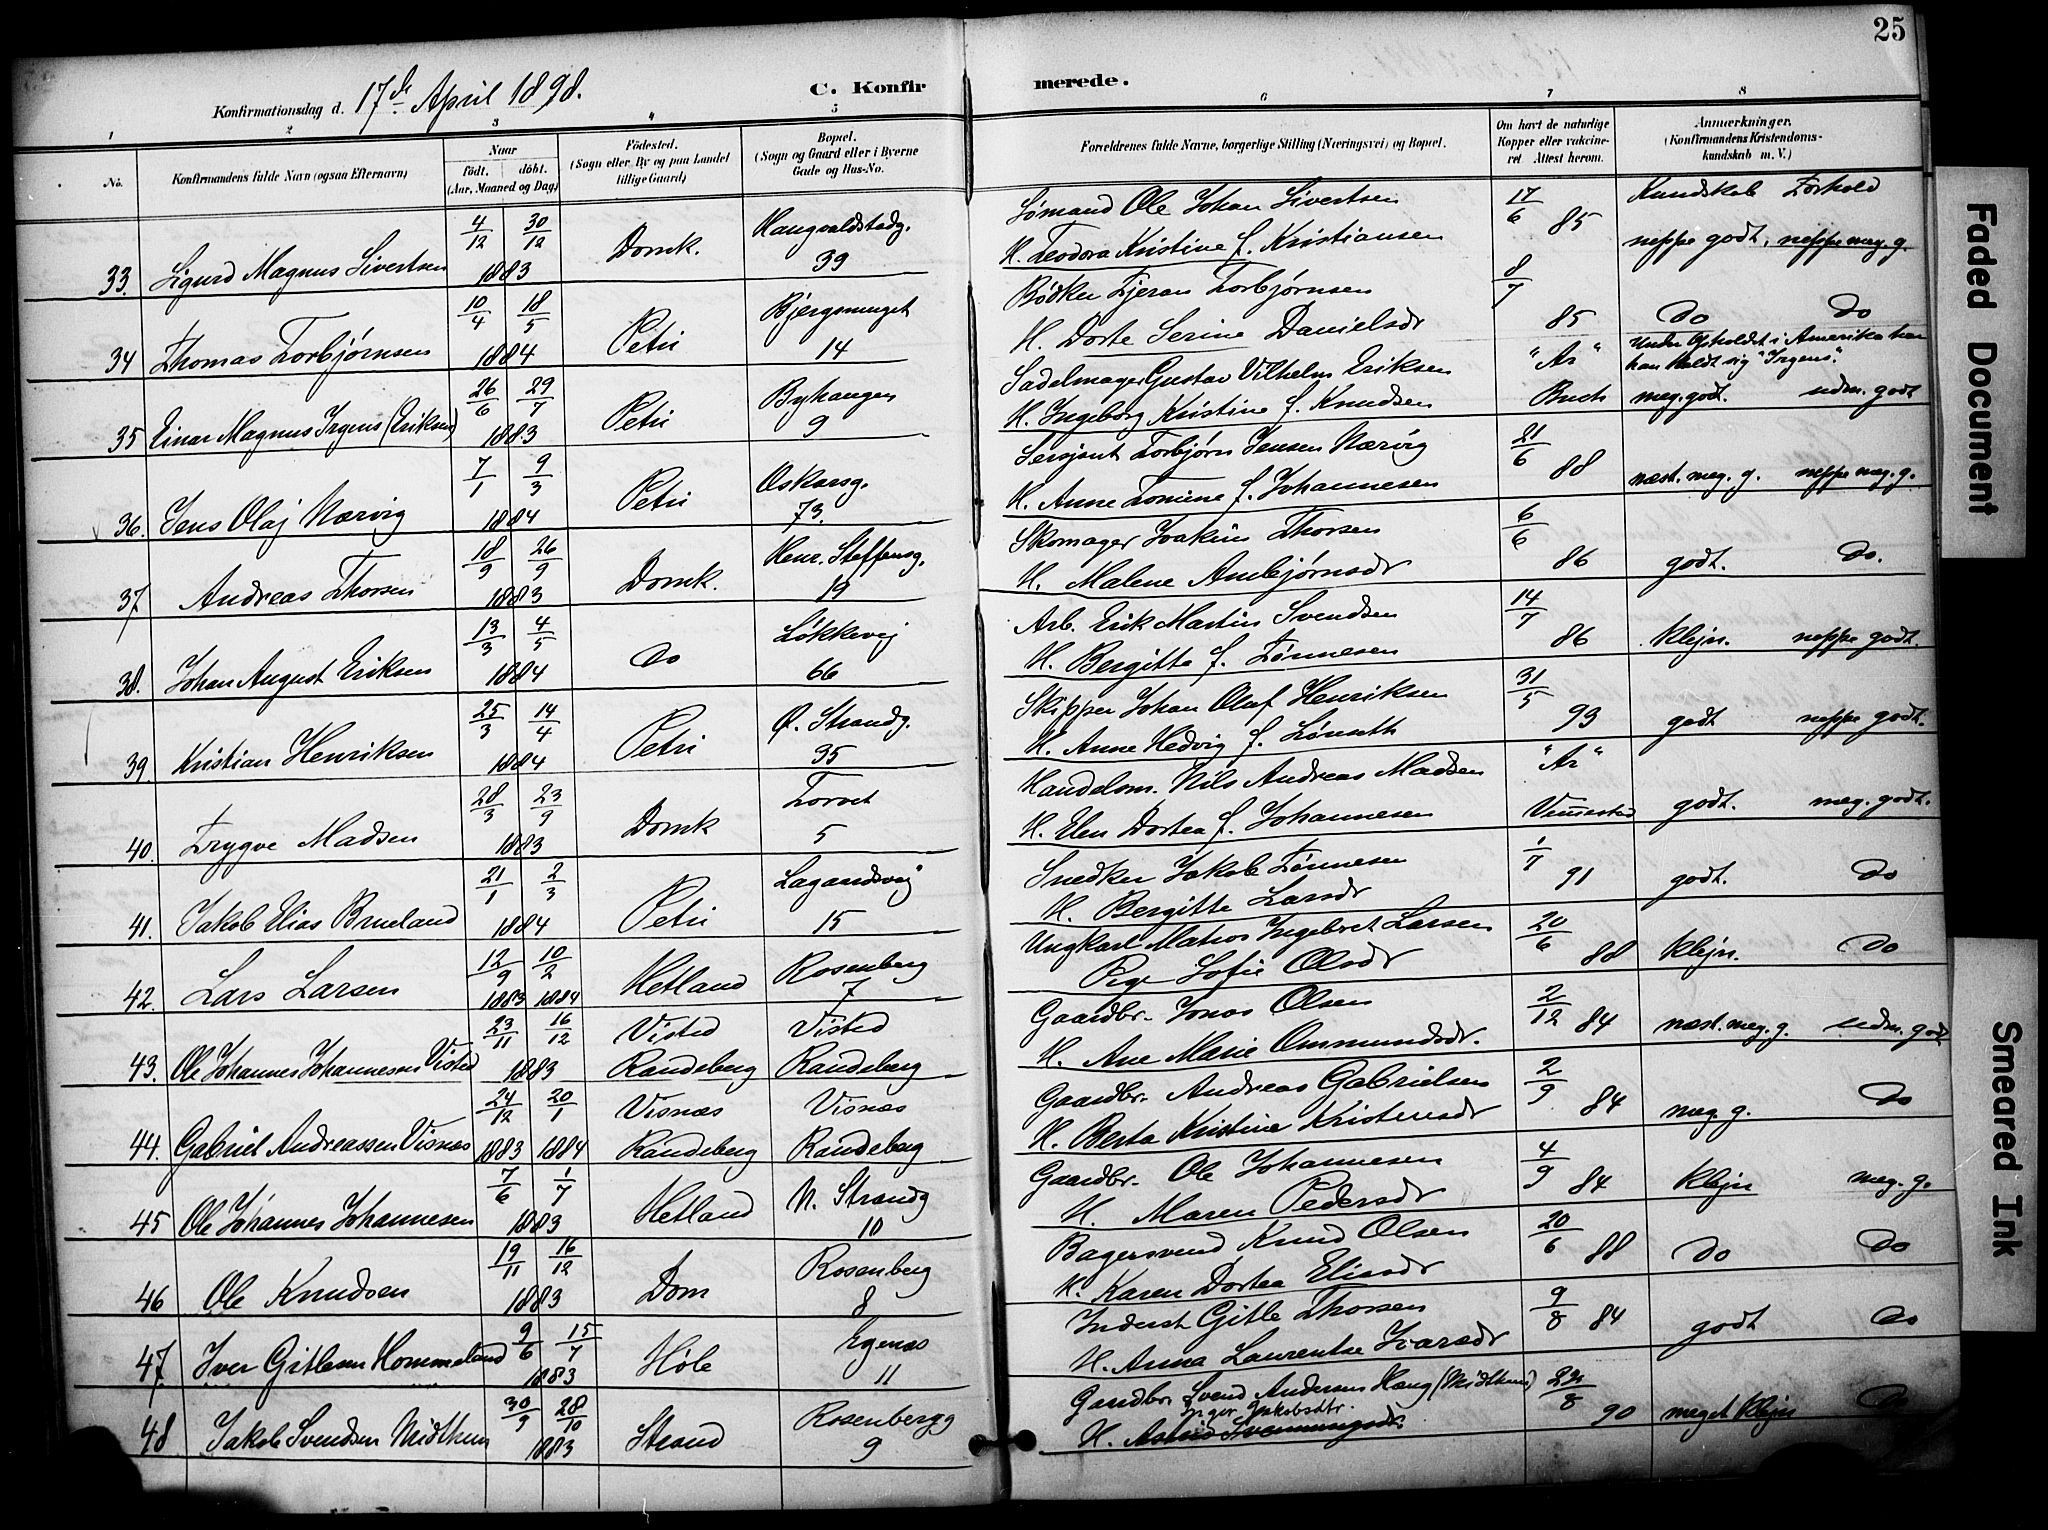 25
Konfirmationsdag d. 17de April 1898.
C. Konfirmerede.
1 2 3 4 5 6 7 8
No.
Konfirmandens fulde Navn (ogsaa Efternavn)
Naar
födt. döbt.
(Aar, Maaned og Dag)
Födested.
(Sogn eller By og paa Landet tillige Gaard)
Bopæl.
(Sogn og Gaard eller i Byerne Gade og Hus-No.
Forældrenes fulde Navne, borgerlige Stilling (Næringsvei) og Bopæl.
Om havt de naturlige Kopper eller vakcineret. Attest herom.
Anmærkninger.
(Konfirmandens Kristendomskundskab m. V.)
Kundskab Forhold
33. Sigurd Magnus Sivertsen 4/12 30/12 1883 Domk. Haugvaldstadg. 39
Sømand Ole Johan Sivertsen
H. Teodora Kristine f. Kristiansen
17/6 85 neppe godt, neppe meg. g.
34 Thomas Torbjørnsen 10/4 18/5 1884 Petri Bjergsmuget 14
Bødker Tjeran Torbjørnsen
H. Dorte Serine Danielsdr
8/7 85 Do Do
35 Einar Magnus Irgens (Eriksen) 26/6 29/7 1883 Petri Byhaugen 9
Sadelmager Gustav Vilhelm Eriksen
H. Ingeborg Kristine f. Knudsen
"Ar" Buch
Under Opholdet i Amerika har han kaldt sig "Irgens".
meg. godt. udm. godt
36. Jens Olaj Nærvig 7/1 9/3 1884 Petri Oskarsg. 73.
Sersjant Torbjørn Jensen Nærvig
H. Anne Tomine f. Johannesen
21/6 88 næst. meg. g. neppe meg. g.
37 Andreas Thorsen 18/9 26/9 1883 Domk. Henr. Steffensg. 19
Skomager Joakim Thorsen
H. Malene Ambjørnsdr
6/6 86 godt. Do.
38. Johan August Eriksen 13/3 4/5 1884 Do Løkkevej 66
Arb. Erik Martin Svendsen
H. Bergitte f. Tønnesen
14/7 86 klejn. neppe godt.
39 Kristian Henriksen 25/3 14/4 1884 Petri Ø. Strandg. 35
Skipper Johan Oluf Henriksen
H. Anne Hedvig f. Lønseth
31/5 93 godt neppe godt.
40. Trygve Madsen 28/3 23/9 1883 Domk Torvet 5
Handelsm. Nils Andreas Madsen
H. Elen Dortea f. Johannesen
"Ar" godt. meg. godt.
41. Jakob Elias Brueland 21/1 2/3 1884 Petri Lagaardsvej 15
Snedker Jakob Tønnesen
H. Bergitte Larsdr
1/7 91 godt. Do
42. Lars Larsen 12/9 10/2 1883 1884 Hetland Rosenberg 7
Ungkarl Matios Ingebret Larsen
Pige Sofie Olsdr
20/6 88 klejn. Do
43. Ole Johannes Johannesen Visted 23/11 16/12 1883 Visted Randeberg Visted Randeberg
Gaardbr. Jonas Olsen
H. Ane Marie Ommundsdr.
2/12 84 næst. meg. g. udm. godt
44. Gabriel Andreassen Visnæs 24/12 20/1 1883 1884 Visnæs Randeberg Visnæs Randeberg
Gaardbr. Andreas Gabrielsen
H. Berta Kristine Kristensdr
2/9 84 meg. g. Do
45 Ole Johannes Johannesen 7/6 1/7 1883 Hetland N. Strandg 10
Gaardbr. Ole Johannesen
H. Maren Pedersdr
4/9 84 klejn meg. g.
46 Ole Knudsen 19/11 16/12 1883 Dom Rosenberg 8
Bagersvend Knud Olsen
H. Karen Dortea Eliasdr
20/6 88 Do Do
47 Iver Gitlesen Hommeland 9/6 15/7 1883 Høle Egenæs 11
Inderst Gitle Thorsen
H. Anna Laurentse Ivarsdr
9/8 84 godt Do
48 Jakob Svendsen Midthun 30/9 28/10 1883 Strand Rosenbergg 9
Gaardbr. Svend Andersen Haug (Midthun)
Inger Jakobsdtr.
H. Astrid
22/8 90 meget klejn Do
Faded Document
Smeared Ink